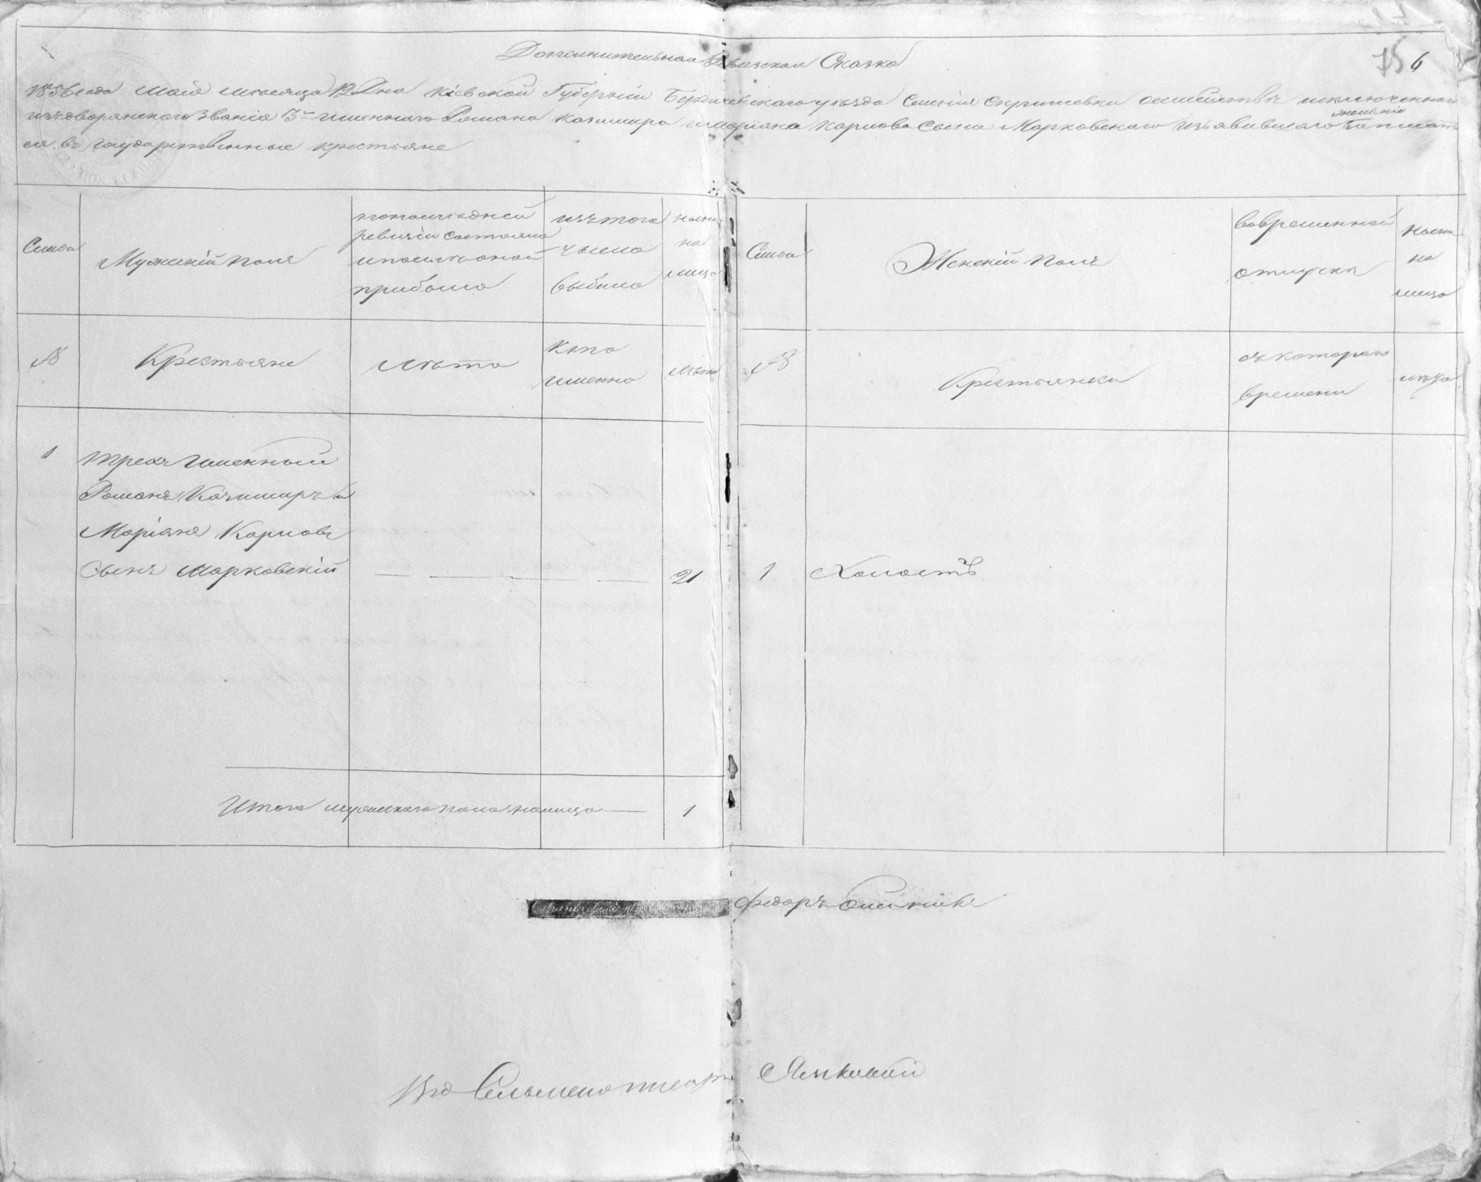 Дополнительная Ревизская Сказка
1856 года Мая месяца 12 Дня Кіевской Губерніи Бердичевскаго уезда Селенія Скригаловки о семействе исключеннаго
изъ дворянскаго званія 3х имяннаго Романа Казимира Маріяна Карлова Сына Марковскаго изъявившаго желаніе записать
ся въ Государственные крестьяне
Семьи
Мужескій полъ
по последней
ревизіи состояло
и после оной
прибыло
изъ того
числа
выбыло
ныне
на
лицо
Семьи
Женскій полъ
во временной
отлучке
ныне
на
лицо
№
Крестьяне
лета
кто
именно
лета
№
Крестьянки
съ котораго
времени
лета
1
Трехъ Имянный
Романъ Казимиръ
Маріянъ Карловъ
Сынъ Марковскій
21
1
Холостъ
Итого мужескаго пола налицо
1
Федоръ
Сельскій писарь